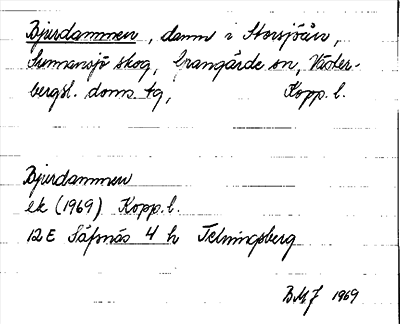 Bjurdammen, damm i Storsjöån,
Sunnansjö skog, Grangärde sn, Väster-
bergsl. doms. tg, Kopp. l.
Bjurdammen
ek (1969) Kopp. l.
12E Säfsnäs 4 h Telningsberg
BMJ 1969